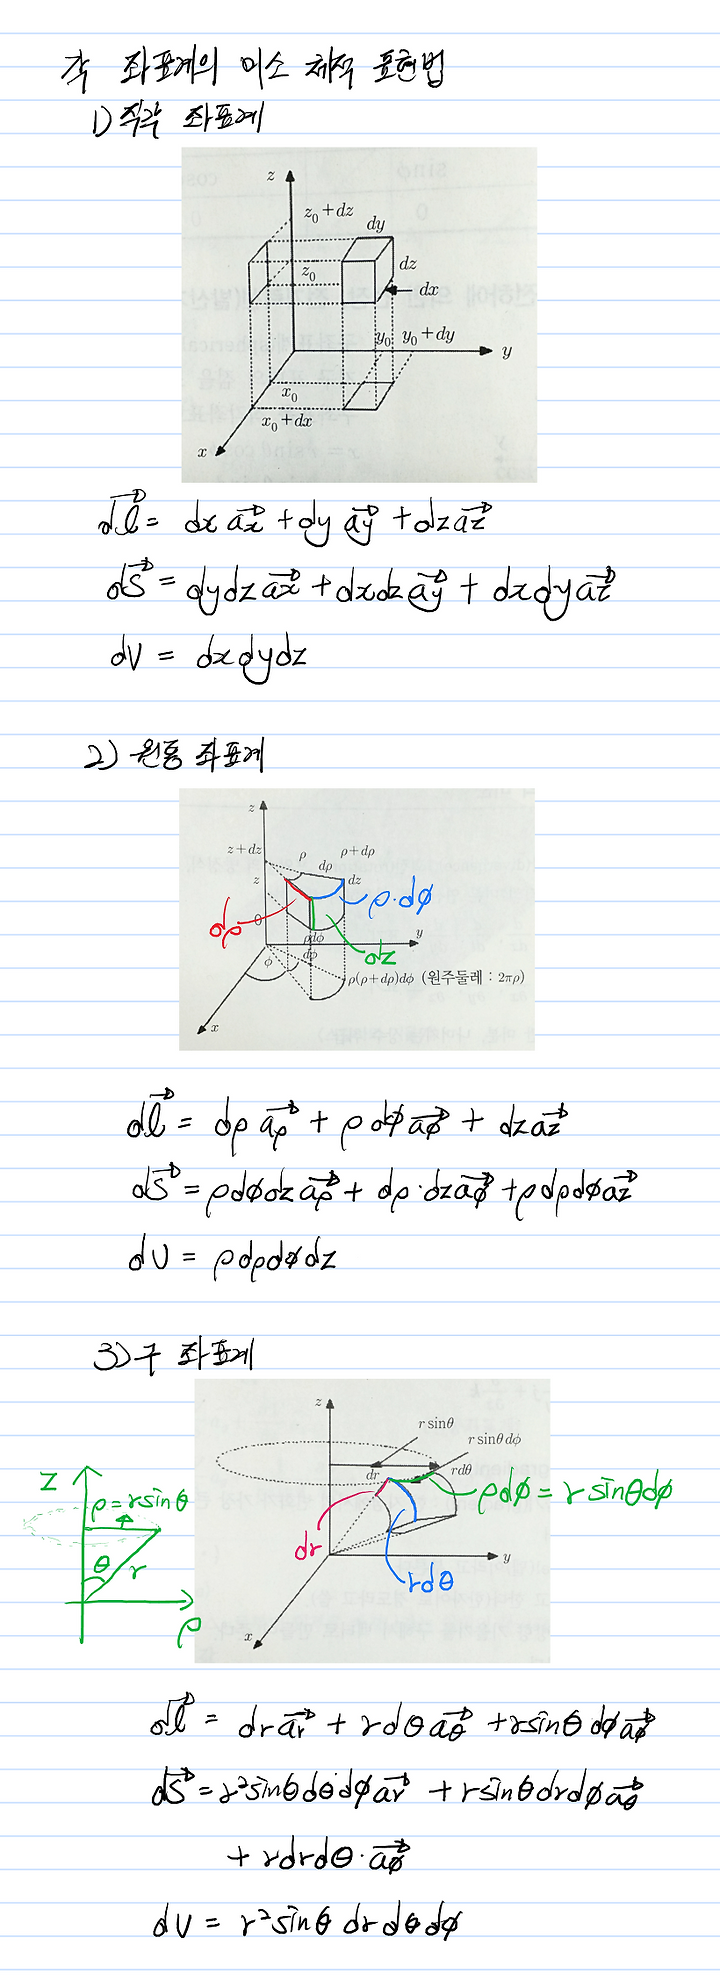 각 좌표계의 미소 체적 표현법
1) 직각 좌표계
z
z₀+dz
dy
dz
z₀
dx
y₀ y₀+dy
y
x₀
x₀+dx
x
dl⃗ = dx a⃗x + dy a⃗y + dz a⃗z
dS⃗ = dydz a⃗x + dxdz a⃗y + dxdy a⃗z
dV = dxdydz
2) 원통 좌표계
z
z+dz
ρ
dρ
ρ+dρ
z
dz
ρ·dϕ
dρ
0
ρdϕ
dz
y
ϕ
dϕ
ρ(ρ+dρ)dϕ (원주둘레 : 2πρ)
x
dl⃗ = dρ a⃗ρ + ρdϕ a⃗ϕ + dz a⃗z
dS⃗ = ρdϕdz a⃗ρ + dρ·dz a⃗ϕ + ρdρdϕ a⃗z
dV = ρdρdϕdz
3) 구 좌표계
z
r sinθ
r sinθ dϕ
dr
rdθ
ρdϕ = r sinθdϕ
dr
rdθ
y
x
z
ρ=rsinθ
θ
r
ρ
dl⃗ = dr a⃗r + rdθ a⃗θ + rsinθ dϕ a⃗ϕ
dS⃗ = r²sinθdθdϕ a⃗r + rsinθdrdϕ a⃗θ
+ rdrdθ·a⃗ϕ
dV = r²sinθ dr dθ dϕ